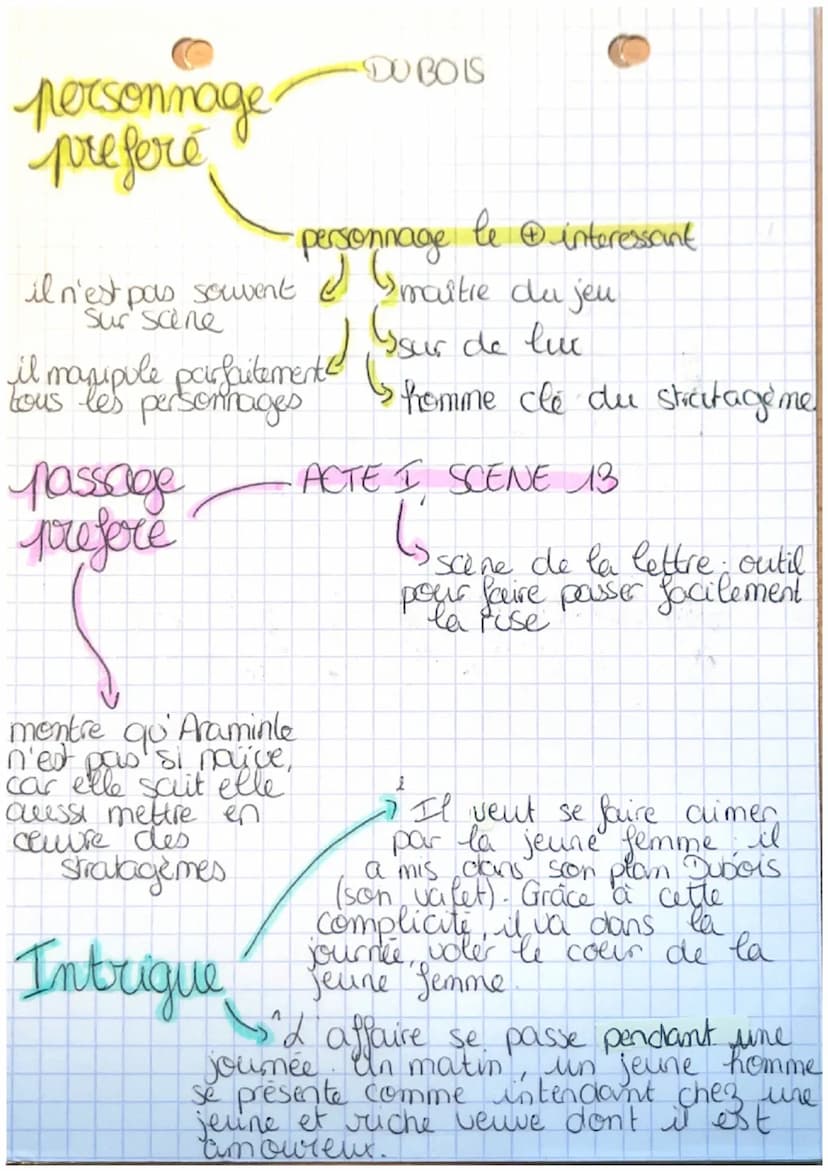 personnage
preferé
DUBOIS
personnage le + interessant
il n'est pas souvent
sur scène
il manipule parfaitement
tous les personnages
maître du jeu
sur de lui
homme clé du stratagème
passage
prefere
ACTE I, SCENE 13
scène de la lettre : outil
pour faire passer facilement
la ruse
montre qu'Araminte
n'est pas si naïve,
car elle sait elle
aussi mettre en
œuvre des
stratagèmes
Intrigue
2
Il veut se faire aimer
par la jeune femme : il
a mis dans son plan Dubois
(son valet). Grâce à cette
complicité, il va dans la
journée, voler le coeur de la
jeune femme.
1
L'affaire se passe pendant une
journée. Un matin, un jeune homme
se présente comme intendant chez une
jeune et riche veuve dont il est
amoureux.